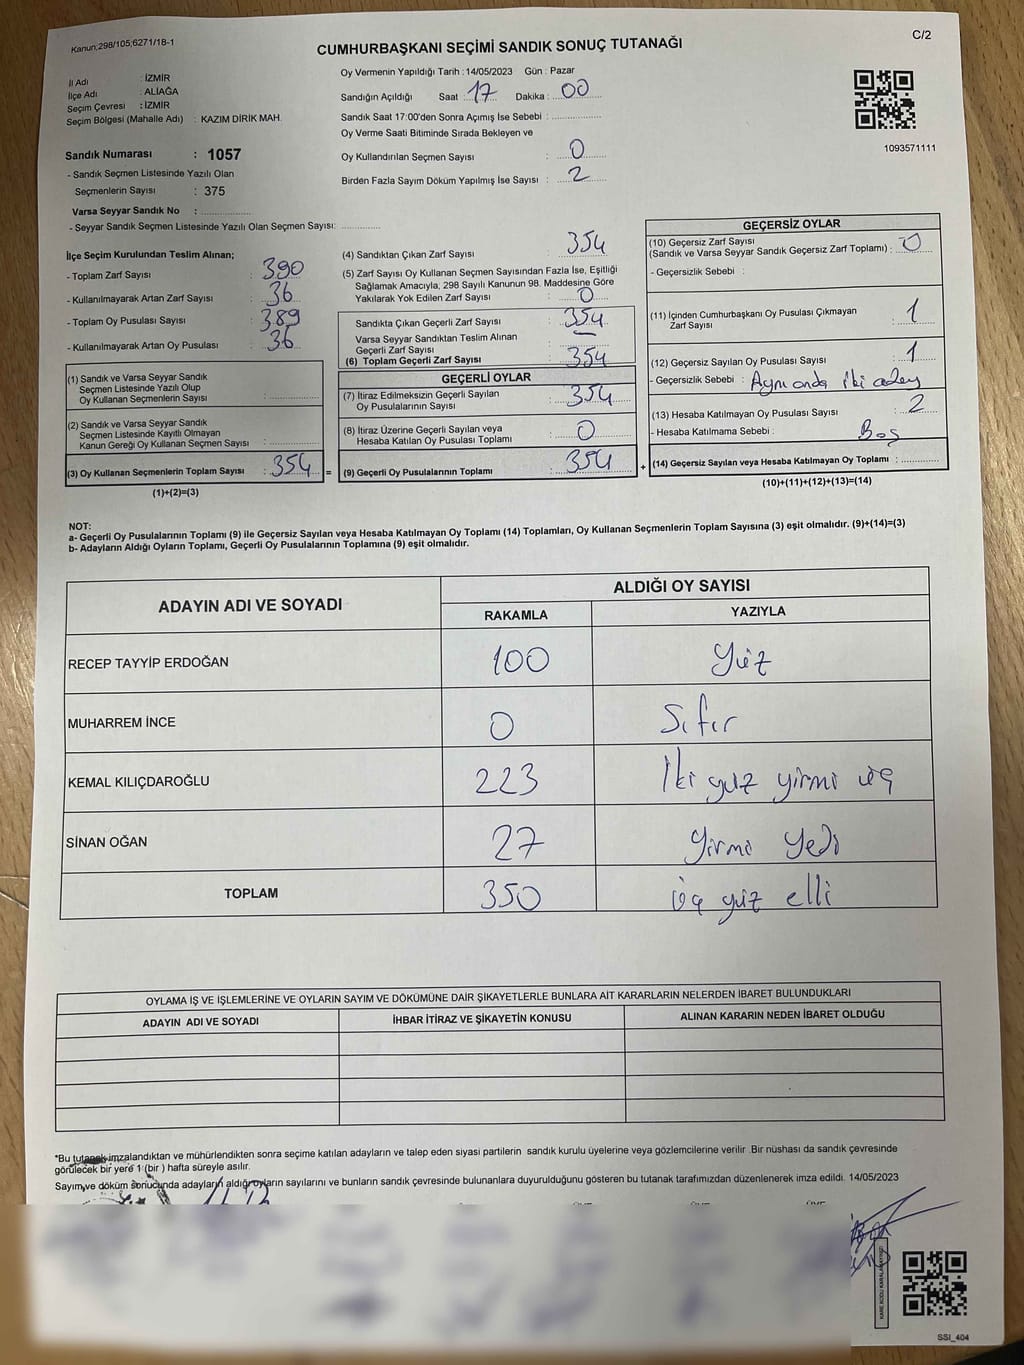 Kanun;298/105;6271/18-1
C/2
CUMHURBAŞKANI SEÇİMİ SANDIK SONUÇ TUTANAĞI
İl Adı : İZMİR
İlçe Adı : ALİAĞA
Seçim Çevresi : İZMİR
Seçim Bölgesi (Mahalle Adı) : KAZIM DİRİK MAH.
Sandık Numarası : 1057
- Sandık Seçmen Listesinde Yazılı Olan
Seçmenlerin Sayısı : 375
Varsa Seyyar Sandık No :
- Seyyar Sandık Seçmen Listesinde Yazılı Olan Seçmen Sayısı:
Oy Vermenin Yapıldığı Tarih : 14/05/2023 Gün : Pazar
Sandığın Açıldığı Saat : 17 Dakika : 00
Sandık Saat 17:00'den Sonra Açımış İse Sebebi :
Oy Verme Saati Bitiminde Sırada Bekleyen ve
Oy Kullandırılan Seçmen Sayısı : 0
Birden Fazla Sayım Döküm Yapılmış İse Sayısı : 2
1093571111
İlçe Seçim Kurulundan Teslim Alınan;
- Toplam Zarf Sayısı : 390
- Kullanılmayarak Artan Zarf Sayısı : 36
- Toplam Oy Pusulası Sayısı : 389
- Kullanılmayarak Artan Oy Pusulası : 36
(1) Sandık ve Varsa Seyyar Sandık
Seçmen Listesinde Yazılı Olup
Oy Kullanan Seçmenlerin Sayısı :
(2) Sandık ve Varsa Seyyar Sandık
Seçmen Listesinde Kayıtlı Olmayan
Kanun Gereği Oy Kullanan Seçmen Sayısı :
(3) Oy Kullanan Seçmenlerin Toplam Sayısı : 354 =
(1)+(2)=(3)
(4) Sandıktan Çıkan Zarf Sayısı : 354
(5) Zarf Sayısı Oy Kullanan Seçmen Sayısından Fazla İse, Eşitliği
Sağlamak Amacıyla; 298 Sayılı Kanunun 98. Maddesine Göre
Yakılarak Yok Edilen Zarf Sayısı : 0
Sandıkta Çıkan Geçerli Zarf Sayısı : 354
Varsa Seyyar Sandıktan Teslim Alınan
Geçerli Zarf Sayısı : –
(6) Toplam Geçerli Zarf Sayısı : 354
GEÇERLİ OYLAR
(7) İtiraz Edilmeksizin Geçerli Sayılan
Oy Pusulalarının Sayısı : 354
(8) İtiraz Üzerine Geçerli Sayılan veya
Hesaba Katılan Oy Pusulası Toplamı : 0
(9) Geçerli Oy Pusulalarının Toplamı : 354 +
GEÇERSİZ OYLAR
(10) Geçersiz Zarf Sayısı
(Sandık ve Varsa Seyyar Sandık Geçersiz Zarf Toplamı) : 0
- Geçersizlik Sebebi :
(11) İçinden Cumhurbaşkanı Oy Pusulası Çıkmayan
Zarf Sayısı : 1
(12) Geçersiz Sayılan Oy Pusulası Sayısı : 1
- Geçersizlik Sebebi : Aynı anda iki aday
(13) Hesaba Katılmayan Oy Pusulası Sayısı : 2
- Hesaba Katılmama Sebebi : Boş
(14) Geçersiz Sayılan veya Hesaba Katılmayan Oy Toplamı :
(10)+(11)+(12)+(13)=(14)
NOT:
a- Geçerli Oy Pusulalarının Toplamı (9) ile Geçersiz Sayılan veya Hesaba Katılmayan Oy Toplamı (14) Toplamları, Oy Kullanan Seçmenlerin Toplam Sayısına (3) eşit olmalıdır. (9)+(14)=(3)
b- Adayların Aldığı Oyların Toplamı, Geçerli Oy Pusulalarının Toplamına (9) eşit olmalıdır.
ADAYIN ADI VE SOYADI
ALDIĞI OY SAYISI
RAKAMLA YAZIYLA
RECEP TAYYİP ERDOĞAN 100 yüz
MUHARREM İNCE 0 Sıfır
KEMAL KILIÇDAROĞLU 223 İki yüz yirmi üç
SİNAN OĞAN 27 Yirmi Yedi
TOPLAM 350 üç yüz elli
OYLAMA İŞ VE İŞLEMLERİNE VE OYLARIN SAYIM VE DÖKÜMÜNE DAİR ŞİKAYETLERLE BUNLARA AİT KARARLARIN NELERDEN İBARET BULUNDUKLARI
ADAYIN ADI VE SOYADI İHBAR İTİRAZ VE ŞİKAYETİN KONUSU ALINAN KARARIN NEDEN İBARET OLDUĞU
*Bu tutanak imzalandıktan ve mühürlendikten sonra seçime katılan adayların ve talep eden siyasi partilerin sandık kurulu üyelerine veya gözlemcilerine verilir .Bir nüshası da sandık çevresinde
görülecek bir yere 1 (bir ) hafta süreyle asılır.
Sayım ve döküm sonucunda adayların aldığı oyların sayılarını ve bunların sandık çevresinde bulunanlara duyurulduğunu gösteren bu tutanak tarafımızdan düzenlenerek imza edildi. 14/05/2023
SSI_404